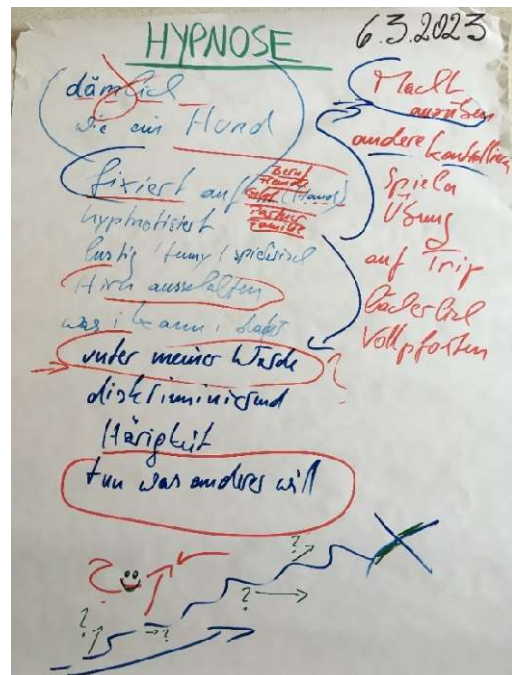 HYPNOSE
6.3.2023
dämlich
wie ein Hund
fixiert auf (Hand)
Beruf
Hunde
Partner
Familie
hypnotisiert
lustig / funny / spielerisch
Hirn ausschalten
was i kann,
unter meiner Würde
?
diskriminierend
Hörigkeit
tun was anderer will
Macht
ausüben
andere kontrollieren
Spielen
Übung
auf Trip
lächerlich
Vollpfosten
?
?
?
?
?